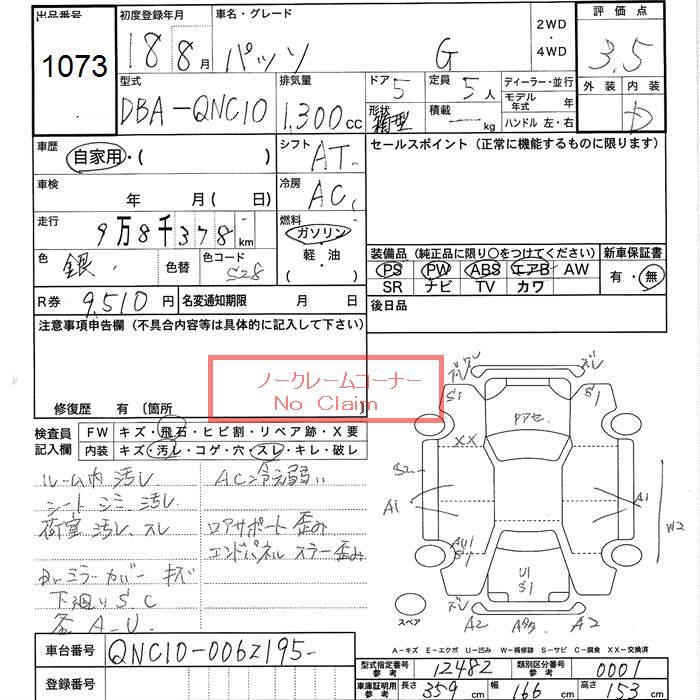 出品番号
1073
初度登録年月
18 8月
車名・グレード
パッソ G
2WD
・
4WD
評価点
3.5
外装 内装
D
型式
DBA-QNC10
排気量
1.300cc
ドア 5
形状 箱型
定員 5人
積載 kg
ディーラー・並行
モデル年式 年
ハンドル 左・右
車歴
自家用・( )
シフト
AT
車検
年 月(日)
冷房
AC
走行
9万8千378km
燃料
ガソリン
・
軽・油
( )
色
銀
色替
色コード
S28
R券 9,510円
名変通知期限 月 日
セールスポイント(正常に機能するものに限ります)
装備品(純正品に限り〇をつけてください)
PS PW ABS エアB AW
SR ナビ TV カワ
新車保証書
有・無
後日品
注意事項申告欄(不具合内容等は具体的に記入して下さい)
修復歴 有〔箇所
ノークレームコーナー
No Claim
検査員記入欄
FW キズ・飛石・ヒビ割・リペア跡・X要
内装 キズ・汚レ・コゲ・穴・スレ・キレ・破レ
ルーム内 汚レ
シート シミ 汚レ
荷室 汚レ、スレ
ミラーカバー キズ
下廻り S.C
各 A-U
AC冷え弱い
ロアサポート 歪み
エンドパネル 歪み
ズレ
S1
S1
アセ
XX
S2
A1
A1
W2
AU1
S1
U1
S1
ズレ
A2
A2
スペア
A-キズ E-エクボ U-凹み W-補修跡 S-サビ C-腐食 XX-交換済
車台番号
QNC10-0062195-
登録番号
型式指定番号 参考 12482
類別区分番号 参考 0001
車庫証明用 参考 長さ 359cm 幅 166cm 高さ 153cm